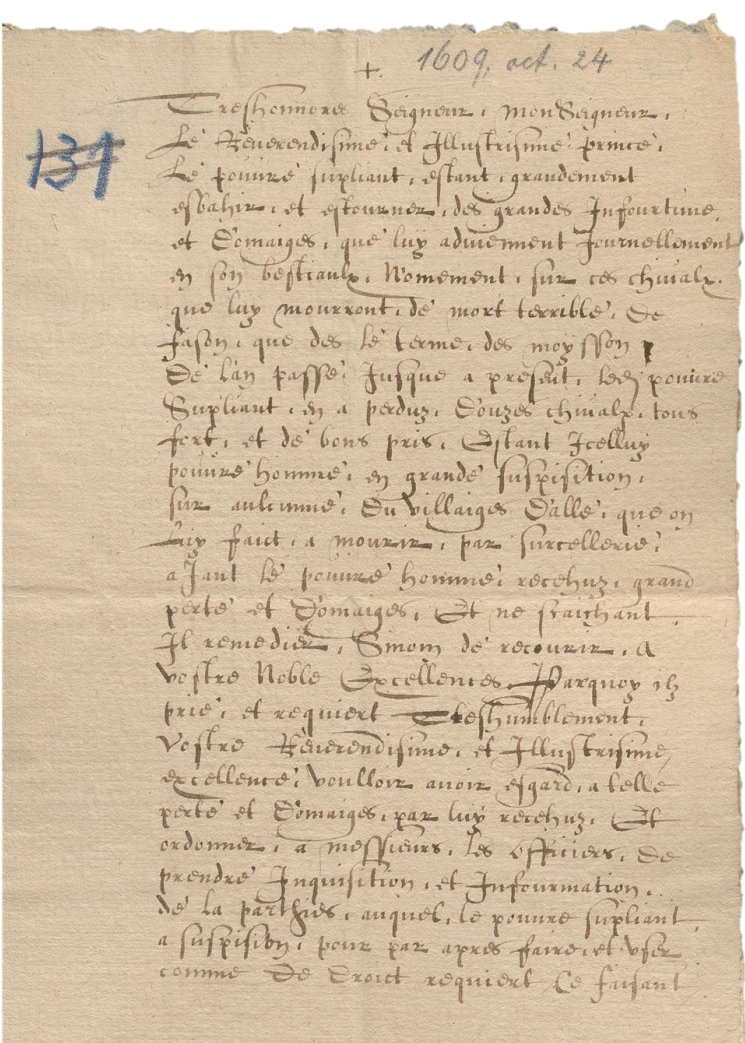 +
1609, oct. 24
131
Treshonnores Seigneur, monSeigneur,
Le Reverendisime, et Illustrisime prince,
Le pouure supliant, estant, grandement
esbahir, et estourner, des grandes Infourtune,
et Domaiges, que luy aduiennent Journellement
en son bestiaulx, Nomement, sur ces chiualx.
que luy mourront, de mort terrible, De
fason, que des le terme, des moysson
De lan passe, Jusque a present, led pouure
Supliant, en a perduz, Douzes chiualx, tous
fort, et de bons pris, Estant Icelluy
pouure homme, en grande suspisition,
sur aulcunne, Du villaiges Dalle, que on
Luy faict, a mourir, par surcellerie,
aJant le pouure homme, recehuz, grand
perte et Domaiges, Et ne scaichant,
Il remedier, Sinom de recourir, A
vostre Noble Excellences, Parquoy ilz
prie, et requiert Treshumblement,
Vostre Reuerendisime, et Illustrisime,
excellence, voulloir auoir esgard, a telle
perte et Domaiges, par luy recehuz, Et
ordonner, a messieurs, les officiers, De
prendre Inquisition, et Infourmation,
de la parthies, auquel, le pouure supliant,
a suspision, pour par apres faire, et vser
comme De Droict requiert Ce faisant